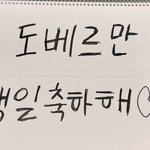 도베르만
생일축하해